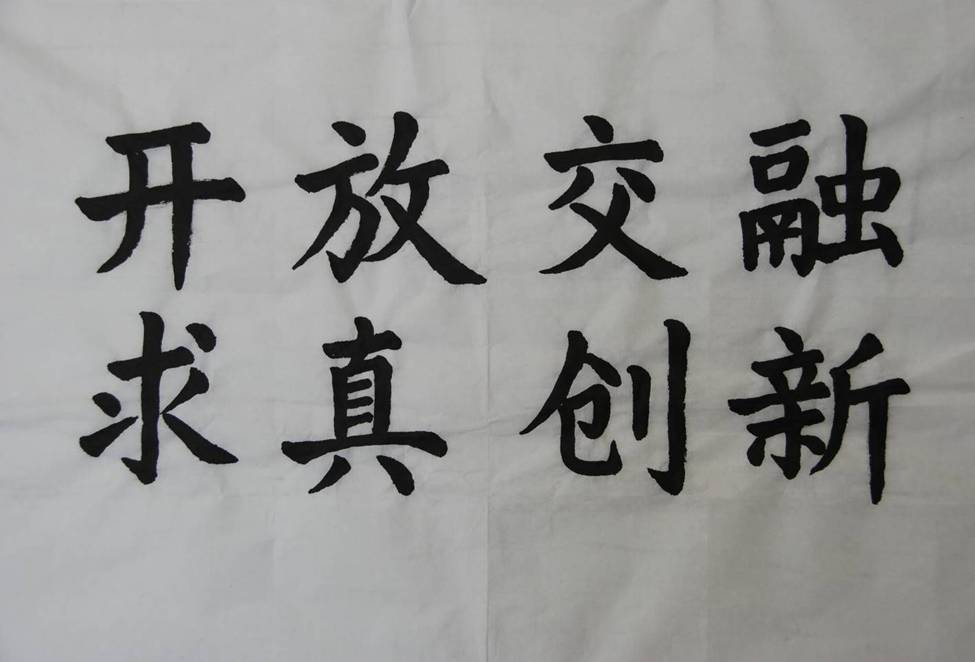 开放交融
求真创新